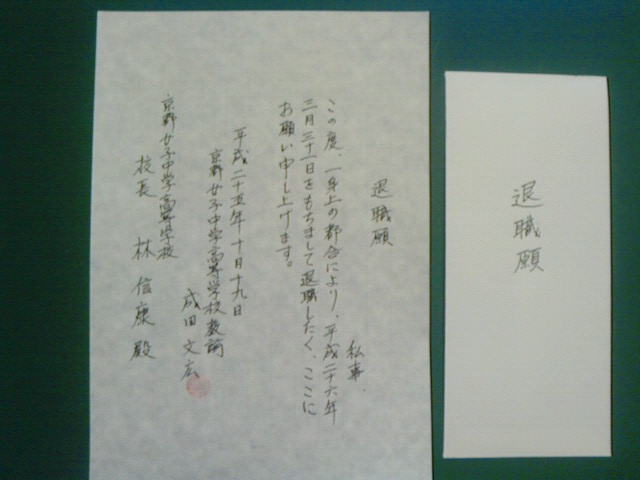 退職願
私事、
この度、一身上の都合により、平成二十六年
三月三十一日をもちまして退職したく、ここに
お願い申し上げます。
平成二十五年十月十九日
京都女子中学高等学校教諭
成田文広
京都女子中学高等学校
校長 林信康殿
退職願